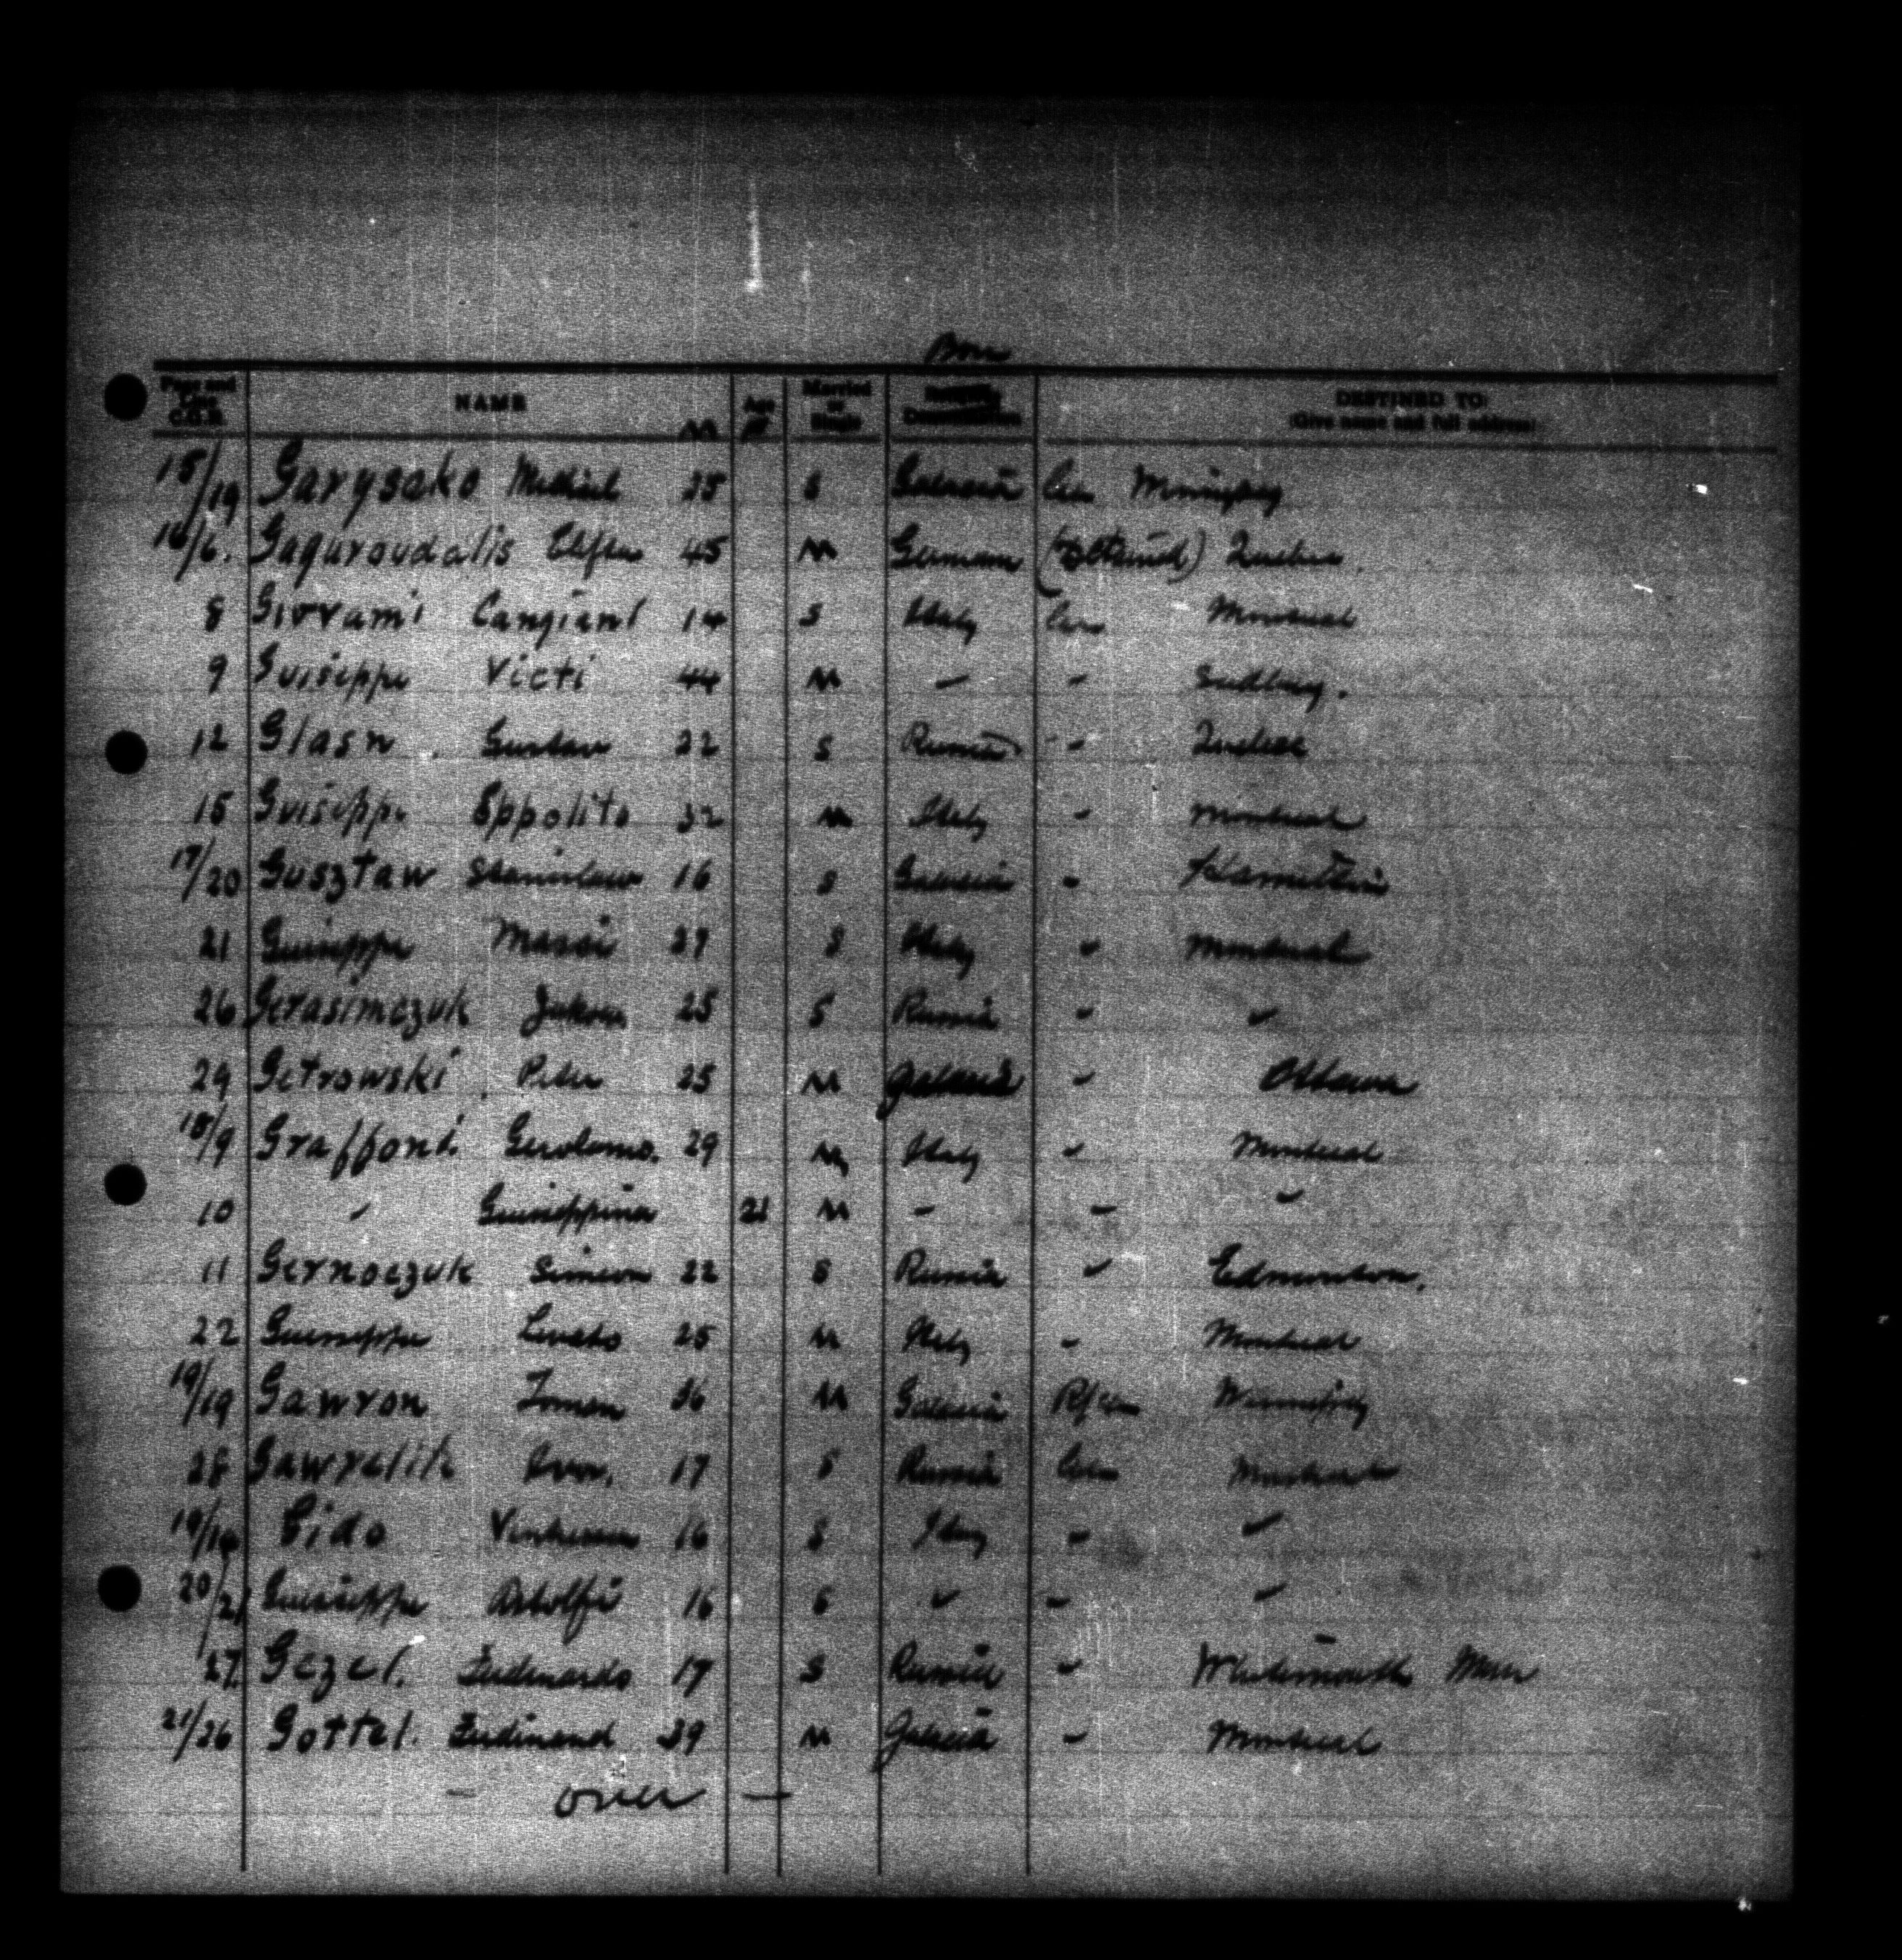 Born
Page and Line C.G.R. NAME M Age F Married or Single DESTINED TO: (Give name and full address)
15/19 Garysako 25 S Galacia Can Winnipeg
16/6. Gaguroudalis 45 M German Quebec
8 Giovvami Cangianl 14 S Italy Can Montreal
9 Guiseppe Victi 44 M " " Sudbury.
12 Glasn. Gustav 22 S Russia " Quebec
15 Guiseppe Eppolito 32 M Italy " Montreal
17/20 Gusztaw Stanislaw 16 S Galacia "
21 Guiseppe Massi 27 S Italy " Montreal
26 Gerasimczuk Jakow 25 S Russia " "
29 Getrowski Peter 25 M Galacia " Ottawa
18/9 Graffoni. Gerolomo. 29 M Italy " Montreal
10 " Guiseppina 21 M " " "
11 Gernoczuk Simeon 22 S Russia " Edmonton.
22 Guiseppe 25 M Italy " Montreal
19/19 Gawron 36 M Galacia Winnipeg
28 Iwan. 17 S Russia Can Montreal
Gido 16 S Italy " "
20/21 Guiseppe Astolfi 16 S " " "
27. Gezel. Ferdinando 17 S Russia " Whitemouth Man
21/26 Gottel. Ferdinand 39 M Galacia " Montreal
— over —